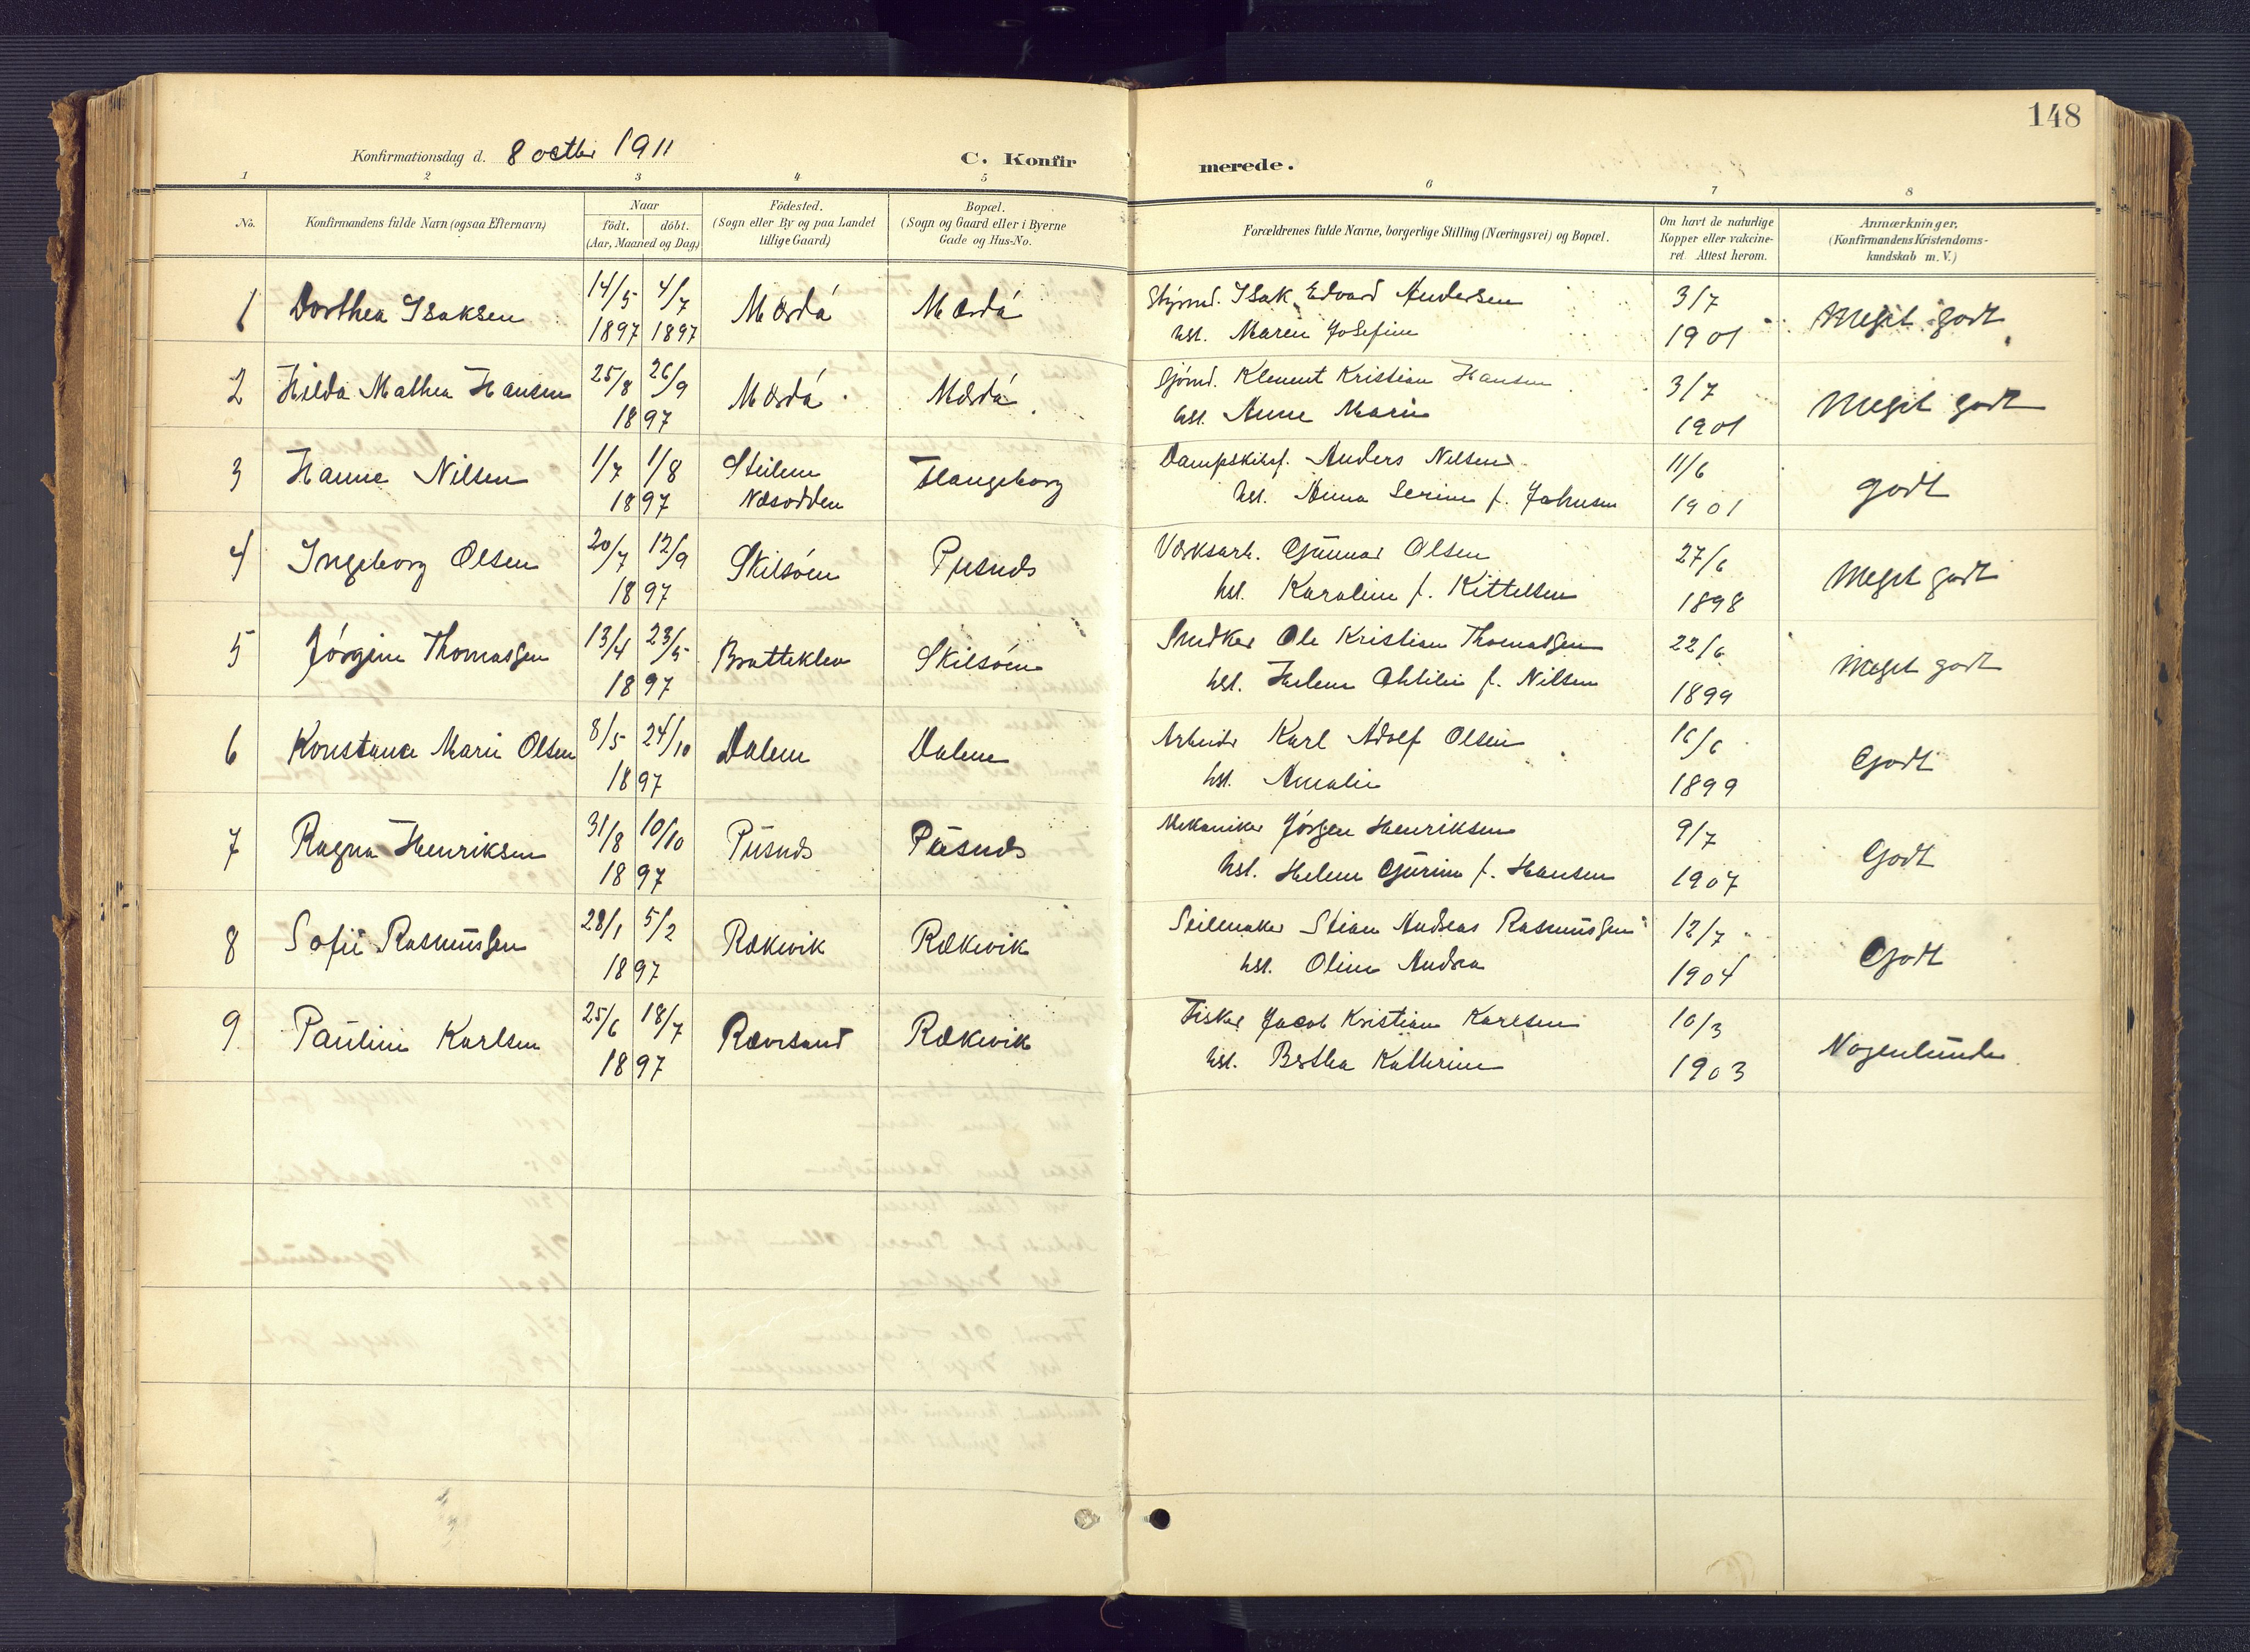 148
Konfirmationsdag d. 8 octbr 1911
C. Konfirmerede.
1 2 3 4 5 6 7 8
No.
Konfirmandens fulde Navn (ogsaa Efternavn)
Naar
født. døbt.
(Aar, Maaned og Dag)
Fødested.
(Sogn eller By og paa Landet
tillige Gaard)
Bopæl.
(Sogn og Gaard eller i Byerne
Gade og Hus-No.
Forældrenes fulde Navne, borgerlige Stilling (Næringsvei) og Bopæl.
Om havt de naturlige
Kopper eller vakcine-
ret. Attest herom.
Anmærkninger,
(Konfirmandens Kristendoms-
kundskab m. V.)
1 Dorthea Isaksen 14/5 4/7 Mærdø Mærdø Styrmd. Isak Edvard Andersen 3/7 Meget godt
1897 1897 hst. Maren Josefine 1901
2 Hilda Mathea Hansen 25/8 26/9 Mærdø Mærdø Sjømd. Klement Kristian Hansen 3/7 Meget godt
1897 hst. Anne Marie 1901
3 Hanne Nilsen 1/7 1/8 Steilene Flangeborg Dampskibsf. Anders Nilsen 11/6 godt
1897 Næsodden hst. Anna Serine f. Johnsen 1901
4 Ingeborg Olsen 20/7 12/9 Skilsøen Pusnes Værksarb. Gunnar Olsen 27/6 Meget godt
1897 hst. Karoline f. Kittelsen 1898
5 Jørgine Thomassen 13/4 23/5 Bratteklev Skilsøen Snedker Ole Kristian Thomassen 22/6 Meget godt
1897 hst. Helene Othilie f. Nilsen 1899
6 Konstance Marie Olsen 8/5 24/10 Dalene Dalene Arbeider Karl Adolf Olsen 16/6 Godt
1897 hst. Amalie 1899
7 Ragna Henriksen 31/8 10/10 Pusnes Pusnes Mekaniker Jørgen Henriksen 9/7 Godt
1897 hst. Helene Gurine f. Hansen 1907
8 Sofie Rasmussen 28/1 5/2 Rækevik Rækevik Seilmaker Stian Andreas Rasmussen 12/7 Godt
1897 hst. Oline Andrea 1904
9 Pauline Karlsen 25/6 18/7 Rævesand Rækevik Fisker Jacob Kristian Karlsen 10/3 Nogenlunde
1897 hst. Berthea Kathrine 1903